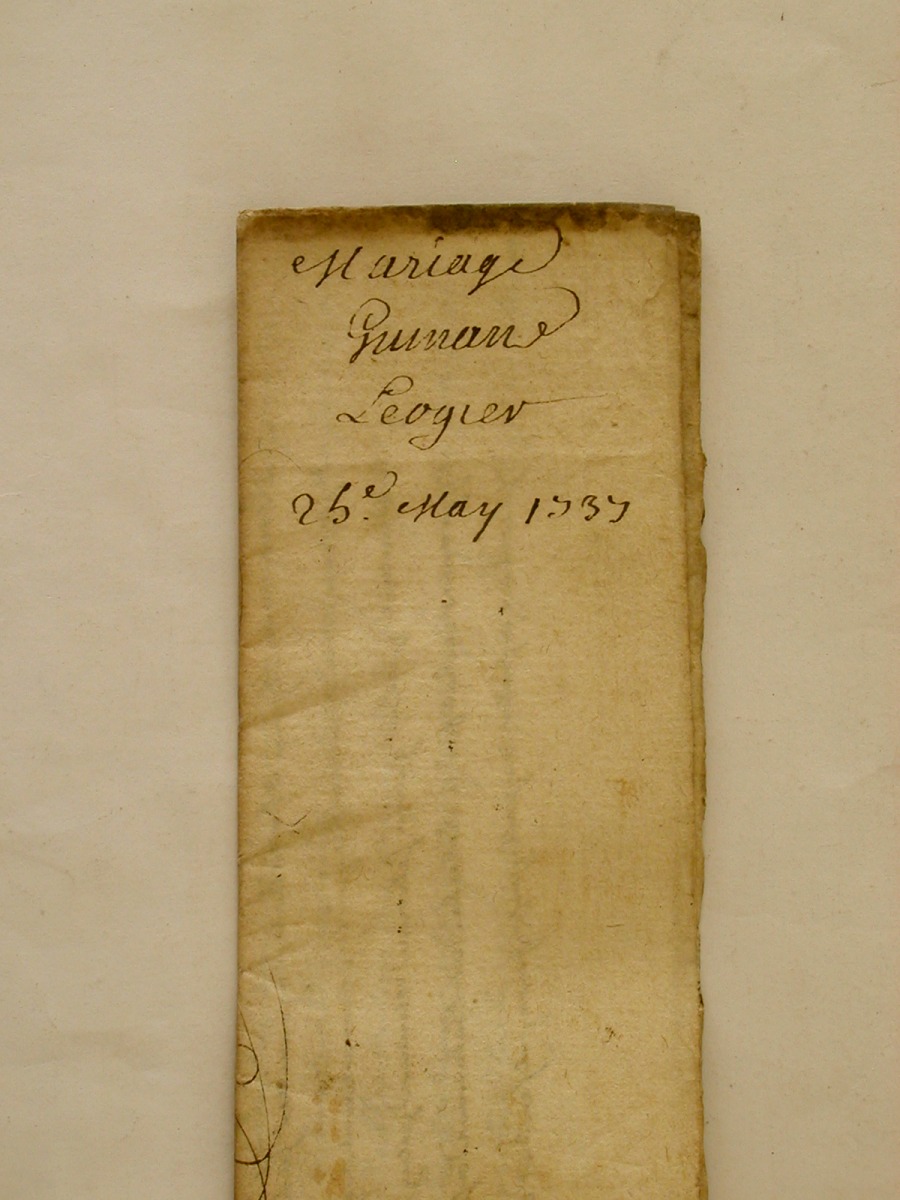 Mariage
Guinand
Leogier
25.e May 1737